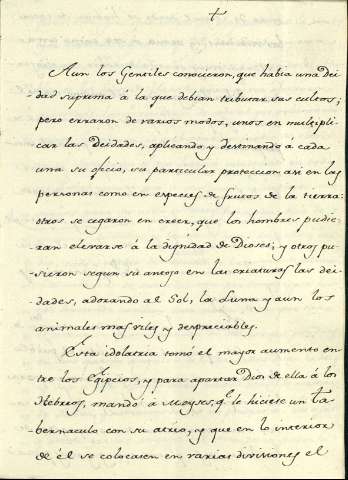 +
Aun los Gentiles conocieron, que habia una dei
dad suprema á la que debian tributar sus cultos;
pero erraron de varios modos, unos en multipli
car las Deidades, aplicando y destinando á cada
una su oficio, su particular proteccion asi en las
personas como en especies de frutos de la tierra:
otros se cegaron en creer, que los hombres pudie-
-ran elevarse á la dignidad de Dioses; y otros pu-
-sieron segun su antojo en las criaturas las dei-
-dades, adorando al Sol, la Luna y aun los
animales mas viles y despreciables.
Esta idolatria tomó el mayor aumento en-
tre los Egipcios, y para apartar Dios de ella á los
Hebreos, mandó á Moyses, qe. le hiciese un ta-
bernaculo con su atrio, y que en lo interior
de él se colocasen en varias divisiones el